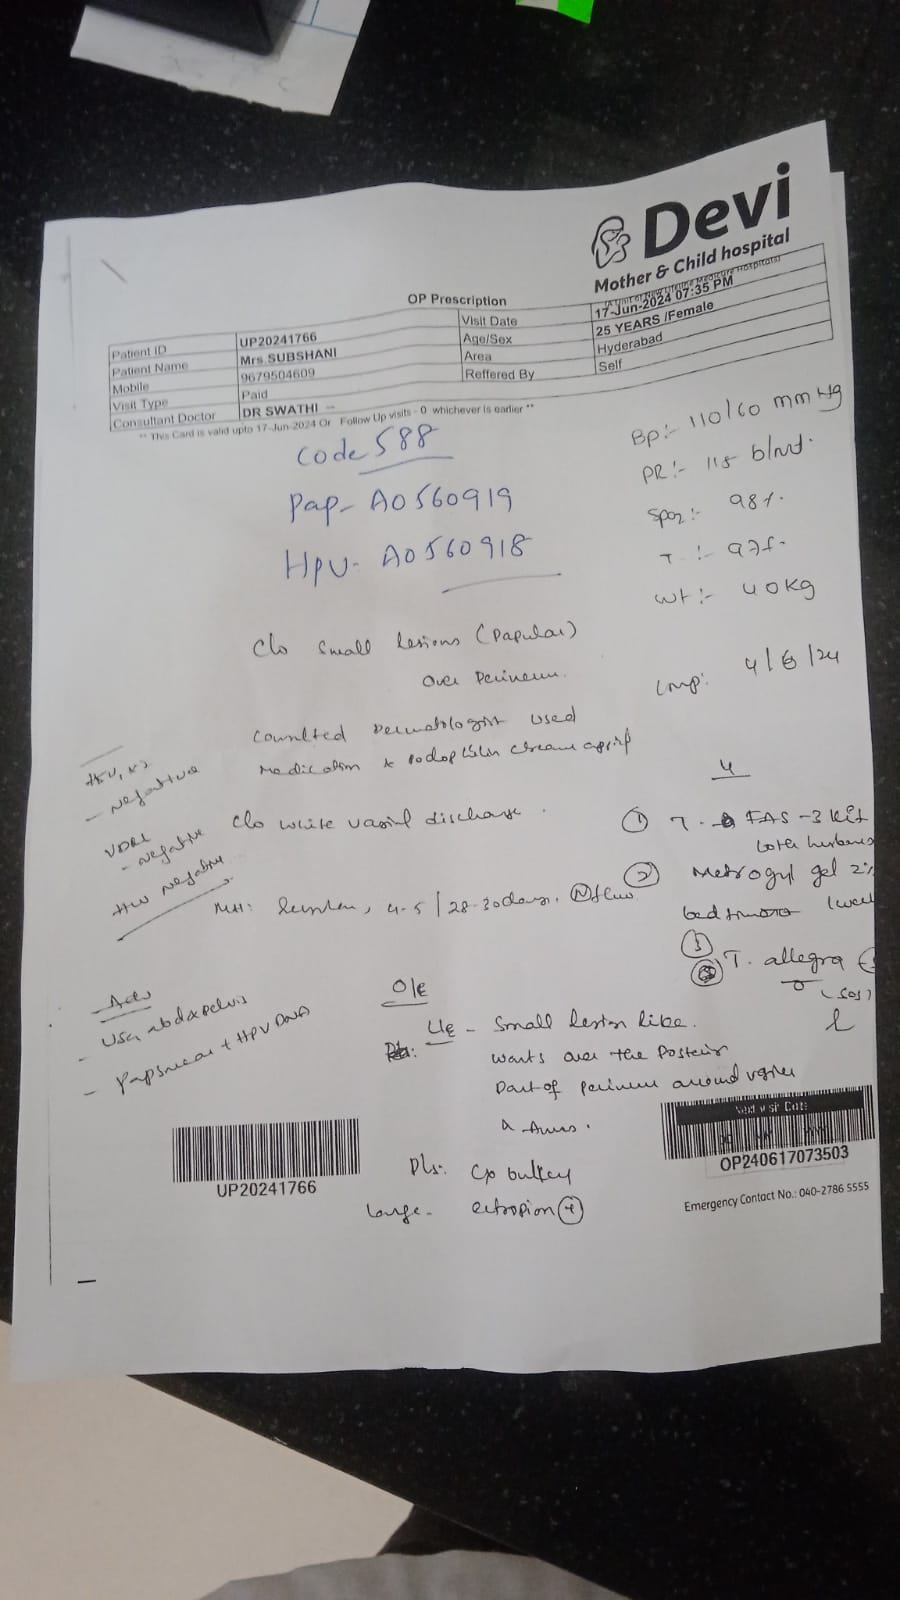 Devi
Mother & Child hospital
(A Unit of New Lifeline Medicure Hospitals)
OP Prescription
Patient ID UP20241766 Visit Date 17-Jun-2024 07:35 PM
Patient Name Mrs.SUBSHANI Age/Sex 25 YEARS /Female
Mobile 9679504609 Area Hyderabad
Visit Type Paid Reffered By Self
Consultant Doctor DR SWATHI
** This Card is valid upto 17-Jun-2024 Or Follow Up visits - 0 whichever is earlier **
Code 588
Pap- A0560919
HPV- A0560918
Bp:- 110/60 mmHg
PR:- 115 b/mt.
Spo2:- 98%.
T:- 97f.
Wt:- 40kg
Lmp: 4/6/24
C/o small lesions (papular)
over perineum.
Consulted Dermatologist used
medication &
C/o white vaginal discharge.
HSV 1,2
- Negative
VDRL
- Negative
HIV Negative
MH: Regular, 4-5/28-30days. (N) flow
Adv
- USG abd & pelvis
- Papsmear + HPV DNA
① T. FAS-3 Kit
② Metrogyl gel 2%
bed time
③ T. allegra
(SOS)
O/E
L/E - Small lesion like
warts over the Posterior
Part of perineum around vagina
& Anus.
P/s:. Cx bulkey
Large - ectropion (+)
UP20241766
OP240617073503
Emergency Contact No.: 040-2786 5555